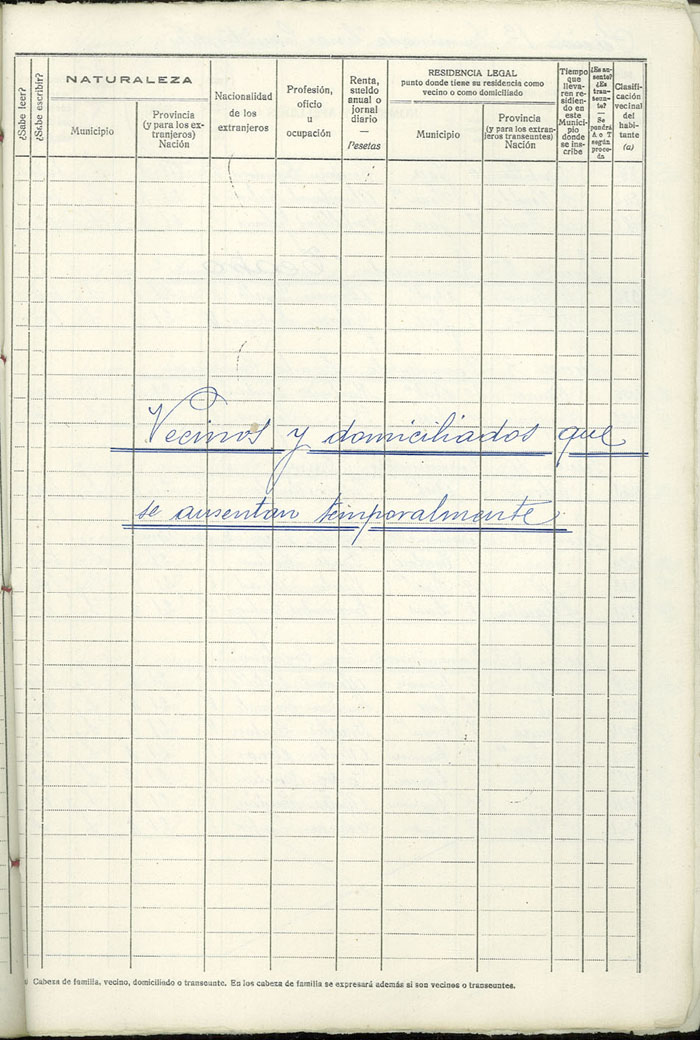 ¿Sabe leer?
¿Sabe escribir?
NATURALEZA
Municipio
Provincia
(y para los ex-
tranjeros)
Nación
Nacionalidad
de los
extranjeros
Profesión,
oficio
u
ocupación
Renta,
sueldo
anual o
jornal
diario
—
Pesetas
RESIDENCIA LEGAL
punto donde tiene su residencia como
vecino o como domiciliado
Municipio
Provincia
(y para los extran-
jeros transeuntes)
Nación
Tiempo
que
lleva-
ren re-
sidien-
do en
este
Munici-
pio
donde
se ins-
cribe
¿Es au-
sente?
¿Es
tran-
seun-
te?
—
Se
pondrá
A o T
según
proce-
da
Clasifi-
cación
vecinal
del
habi-
tante
(a)
Vecinos y domiciliados que
se ausentan temporalmente
Cabeza de familia, vecino, domiciliado o transeunte. En los cabeza de familia se expresará además si son vecinos o transeuntes.